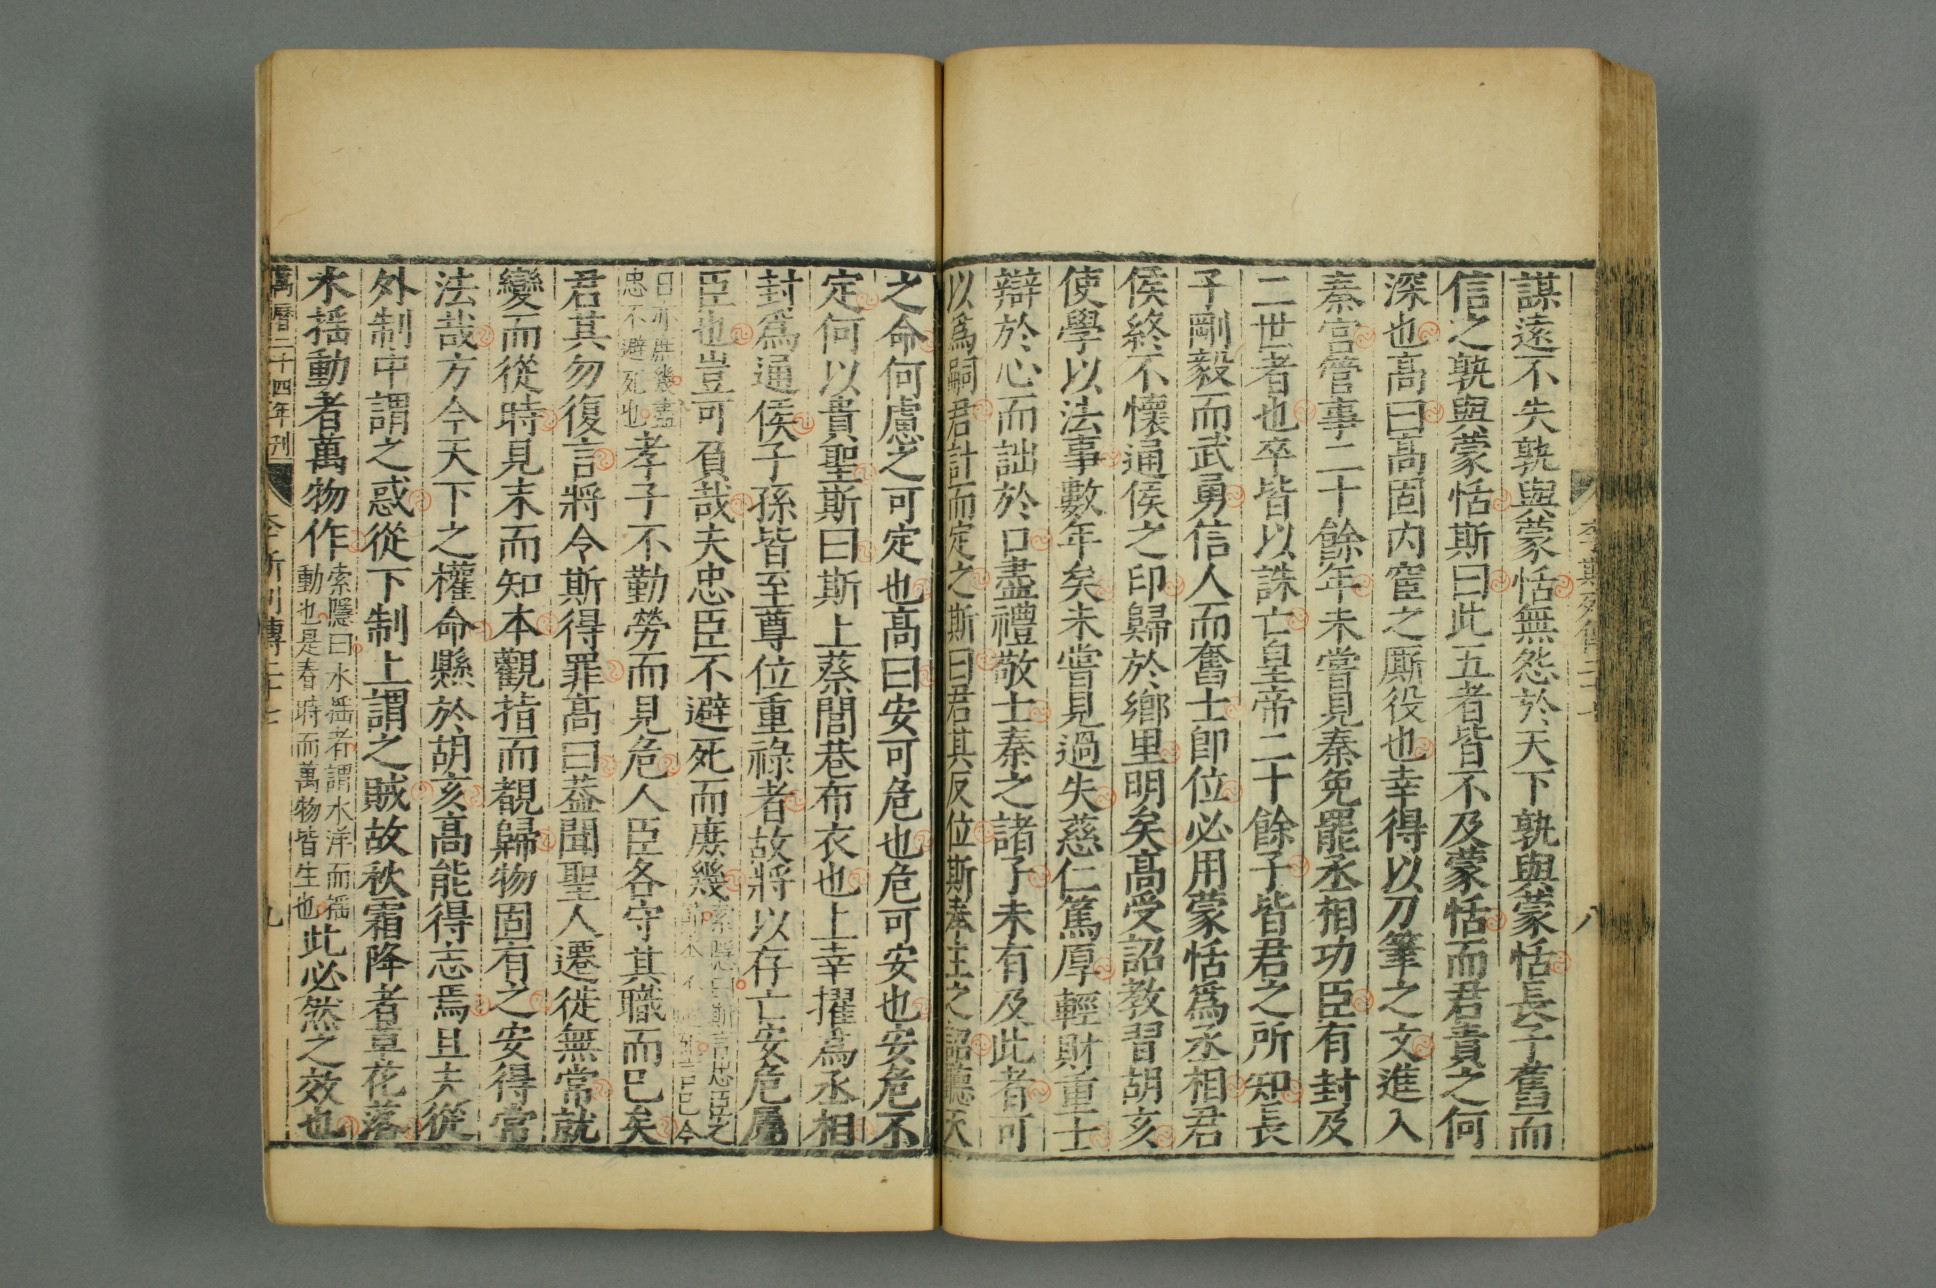 謀遠不失孰與蒙恬無怨於天下孰與蒙恬長子舊而
信之孰與蒙恬斯曰此五者皆不及蒙恬而君責之何
深也高曰高固內宦之廝役也幸得以刀筆之文進入
秦宮管事二十餘年未嘗見秦免罷丞相功臣有封及
二世者也卒皆以誅亡皇帝二十餘子皆君之所知長
子剛毅而武勇信人而奮士卽位必用蒙恬爲丞相君
侯終不懷通侯之印歸於鄉里明矣高受詔敎習胡亥
使學以法事數年矣未嘗見過失慈仁篤厚輕財重士
辯於心而詘於口盡禮敬士秦之諸子未有及此者可
以爲嗣君計而定之斯曰君其反位斯奉主之詔聽天
之命何慮之可定也高曰安可危也危可安也安危不
定何以貴聖斯曰斯上蔡閭巷布衣也上幸擢爲丞相
封爲通侯子孫皆至尊位重祿者故將以存亡安危屬
臣也豈可負哉夫忠臣不避死而庶幾索隱曰斯言忠臣之
孝子不勤勞而見危人臣各守其職而已矣
忠不避死也
君其勿復言將令斯得罪高曰蓋聞聖人遷徙無常就
變而從時見末而知本觀指而覩歸物固有之安得常
法哉方今天下之權命懸於胡亥高能得志焉且夫從
外制中謂之惑從下制上謂之賊故秋霜降者草花落
水搖動者萬物作索隱曰水搖者謂水泮而搖
動也是春時而萬物皆生也此必然之效也
萬曆二十四年刊
李斯列傳二十七
九
李斯列傳二十七
八